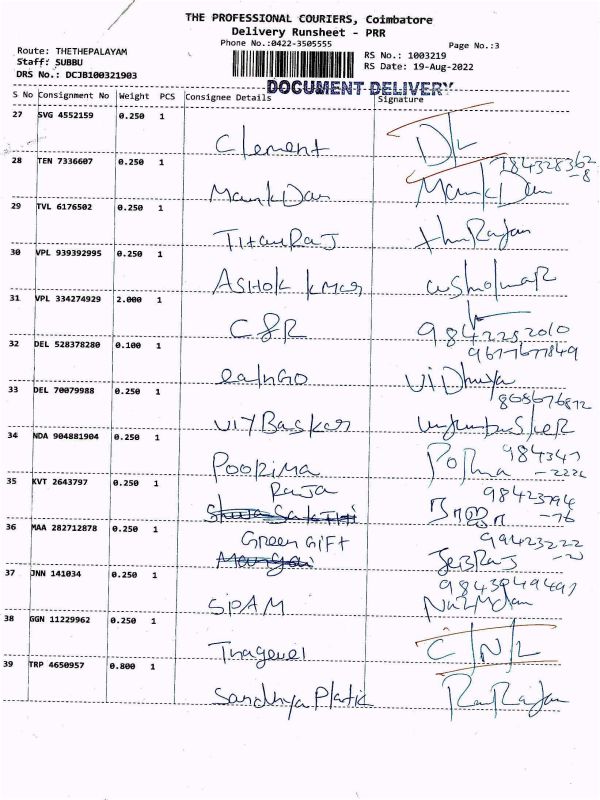 THE PROFESSIONAL COURIERS, Coimbatore
Delivery Runsheet - PRR
Phone No.:0422-3505555
Page No.:3
Route: THETHEPALAYAM
Staff: SUBBU
DRS No.: DCJB100321903
RS No.: 1003219
RS Date: 19-Aug-2022
DOCUMENT DELIVERY
S No Consignment No Weight PCS Consignee Details Signature
27 SVG 4552159 0.250 1
Clement D/L
28 TEN 7336607 0.250 1
Manik Dan
29 TVL 6176502 0.250 1
TitanRaJ
30 VPL 939392995 0.250 1
ASHOK kmar
31 VPL 334274929 2.000 1
C&R 9842252010
32 DEL 528378280 0.100 1
9677677849
eatnGO Vidhuya
33 DEL 70079988 0.250 1
868676872
UIYBaskar
34 NDA 904881904 0.250 1
984347
PooRiMa -2222
35 KVT 2643797 0.250 1
RaJa 98423794
-76
36 MAA 282712878 0.250 1
GREEN GIFT 99423222
JEBRAJ
37 JNN 141034 0.250 1
SPAM
38 GGN 11229962 0.250 1
Thagavel C/N/L
39 TRP 4650957 0.800 1
Sandhya Plastic